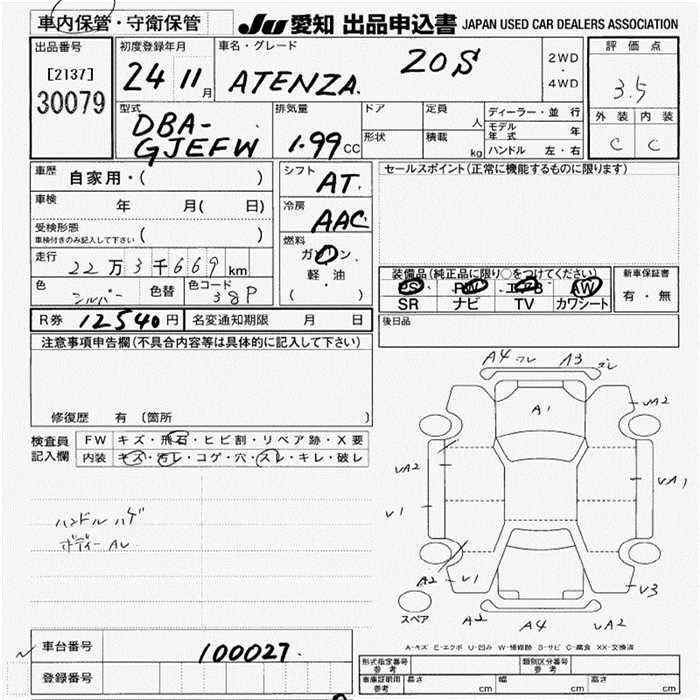 車内保管・守衛保管 JU 愛知 出品申込書 JAPAN USED CAR DEALERS ASSOCIATION
出品番号 初度登録年月 車名・グレード 評価点
[2137] 24 11月 ATENZA. 20S 2WD・4WD 3.5
30079
型式 排気量 ドア 定員 ディーラー・並行 外装 内装
DBA- 人 モデル年式 年
GJEFW 1.99cc 形状 積載 kg ハンドル 左・右 C C
車歴 自家用・( ) シフト AT. セールスポイント(正常に機能するものに限ります)
車検 年 月( 日) 冷房 AAC
受検形態
車検付きのみ記入して下さい ( ) 燃料 ガソリン
走行 22万3千669km 軽・油
装備品(純正品に限り○をつけてください) 新車保証書
色 シルバー 色替 色コード 38P ( )
PS PW エアB AW 有・無
SR ナビ TV カワシート
R券 12540円 名変通知期限 月 日 後日品
注意事項申告欄(不具合内容等は具体的に記入して下さい)
修復歴 有 〔箇所
検査員 FW キズ・飛石・ヒビ割・リペア跡・X要
記入欄 内装 キズ・汚レ・コゲ・穴・スレ・キレ・破レ
ハンドルハゲ
ボディーAU
A4 A3
A1
UA2
UA2
UA1
U1
A2 U1
U3
スペア
A2 A4 UA2
A-キズ E-エクボ U-凹み W-補修跡 S-サビ C-腐食 XX-交換済
車台番号 100027.
登録番号
形式指定番号 参考 類別区分番号 参考
車庫証明用 参考 長さ cm 幅 cm 高さ cm